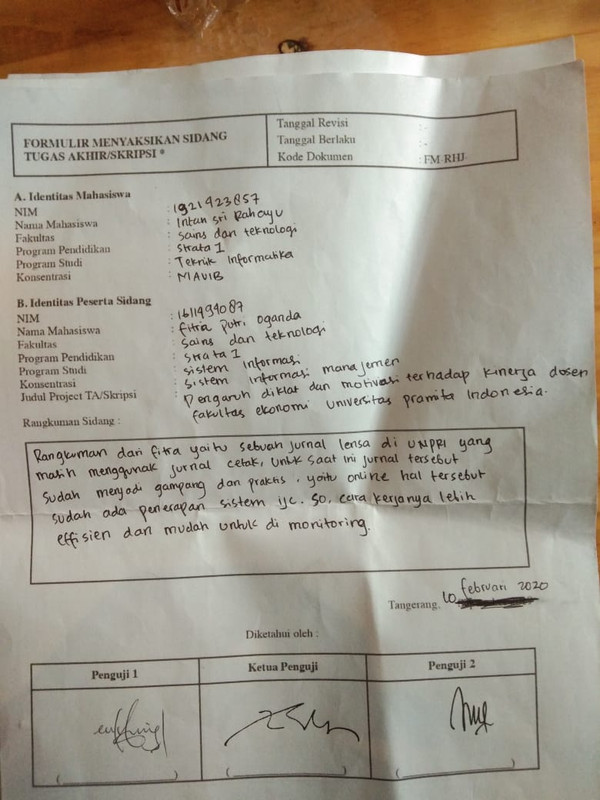 FORMULIR MENYAKSIKAN SIDANG
TUGAS AKHIR/SKRIPSI *
Tanggal Revisi :
Tanggal Berlaku : -
Kode Dokumen : FM-RHJ-
A. Identitas Mahasiswa
NIM : 1921423857
Nama Mahasiswa : Intan Sri Rahayu
Fakultas : Sains dan teknologi
Program Pendidikan : Strata 1
Program Studi : Teknik Informatika
Konsentrasi : MAVIB
B. Identitas Peserta Sidang
NIM : 1611494087
Nama Mahasiswa : fitra putri oganda
Fakultas : Sains dan teknologi
Program Pendidikan : Strata 1
Program Studi : Sistem Informasi
Konsentrasi : Sistem informasi manajemen
Judul Project TA/Skripsi : Pengaruh diklat dan motivasi terhadap kinerja dosen
fakultas ekonomi Universitas pramita Indonesia.
Rangkuman Sidang :
Rangkuman dari fitra yaitu sebuah jurnal lensa di UNPRI yang
masih menggunak jurnal cetak, untuk saat ini jurnal tersebut
sudah menjadi gampang dan praktis, yaitu online hal tersebut
sudah ada penerapan sistem ijc. so, cara kerjanya lebih
effisien dan mudah untuk di monitoring.
Tangerang, 10 februari 2020
Diketahui oleh :
Penguji 1 Ketua Penguji Penguji 2